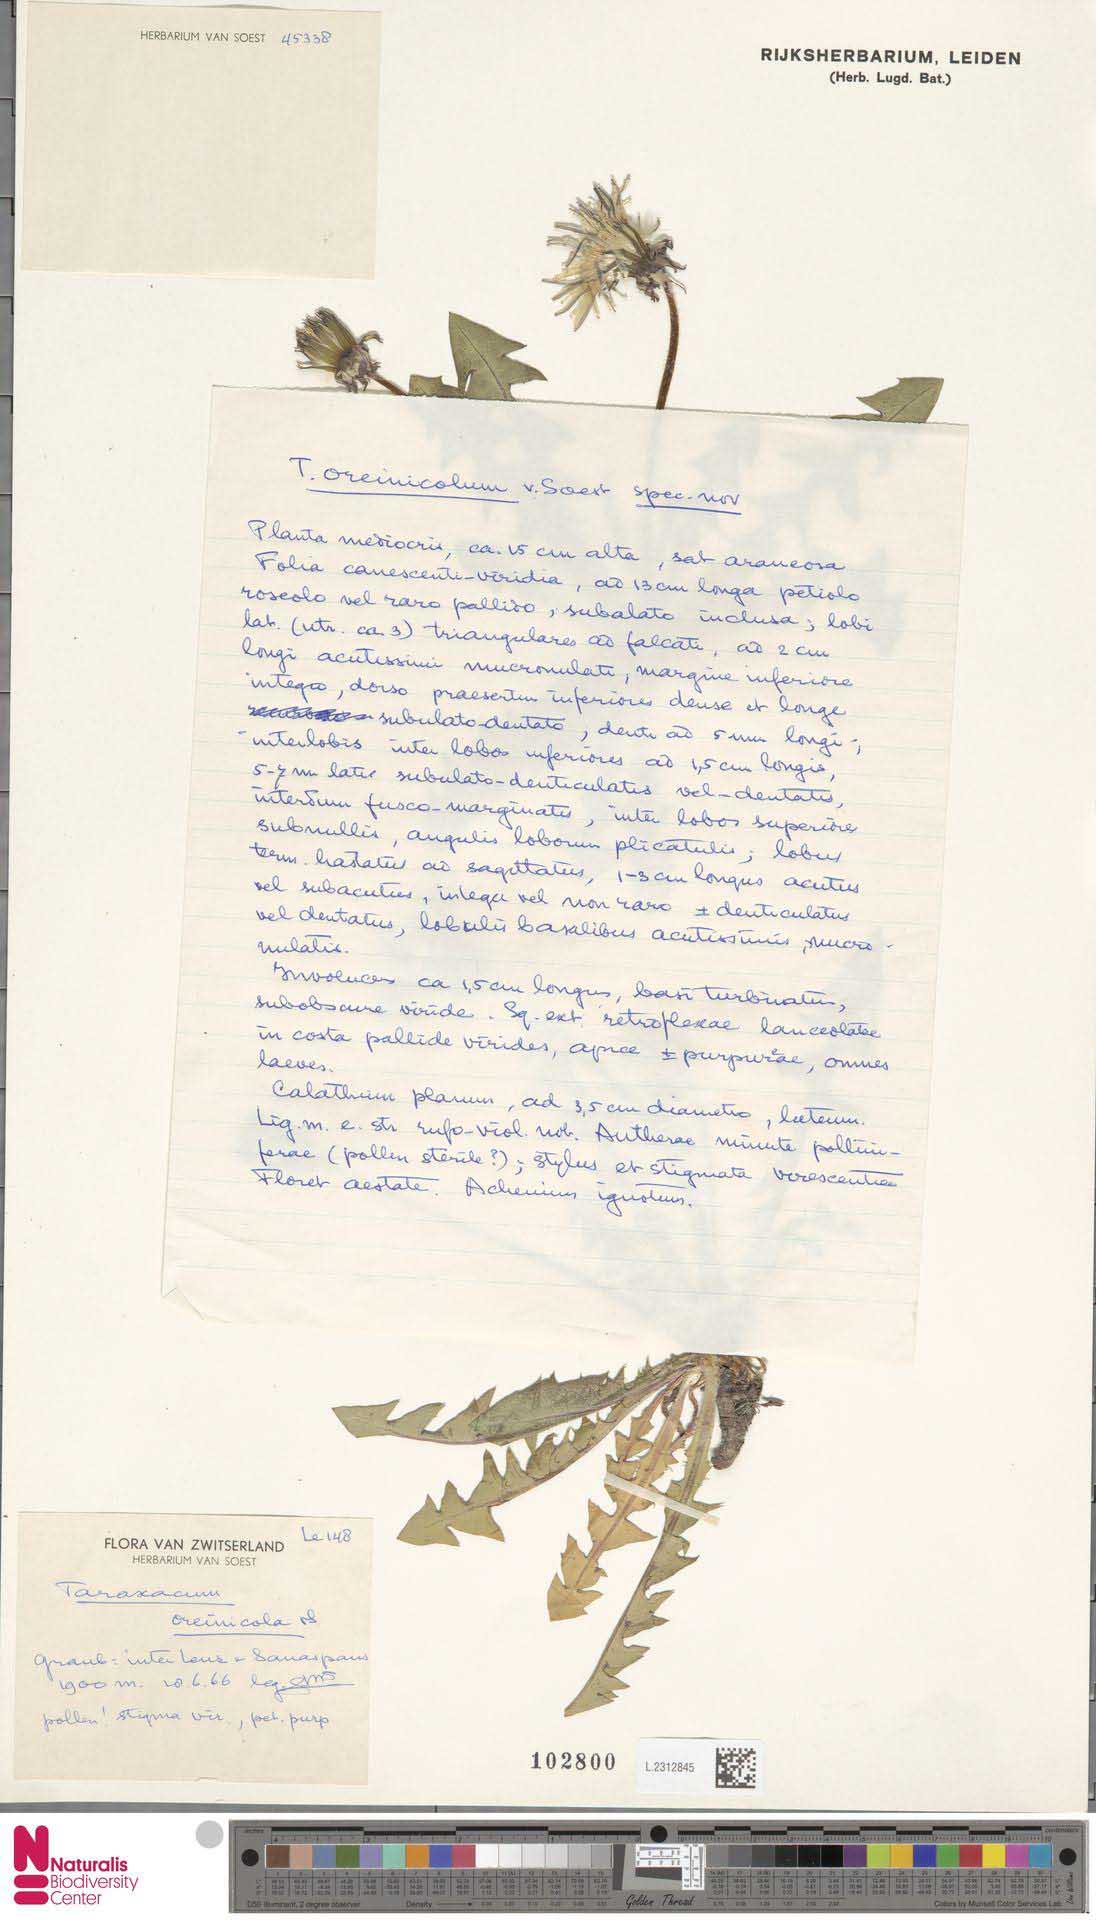 HERBARIUM VAN SOEST 45338
RIJKSHERBARIUM, LEIDEN
(Herb. Lugd. Bat.)
T. oreinicolum v. Soest spec. nov
Planta mediocris, ca. 15 cm alta, sat araneosa
Folia canescenti-viridia, ad 13 cm longa petiolo
roseolo vel raro pallido, subalato inclusa; lobi
lat. (utr. ca 3) triangulares ad falcati, ad 2 cm
longi acutissimi mucronulati, margine inferiore
integro, dorso praesertim inferiores dense et longe
subulato-dentato, denti ad 5 mm longi;
interlobis inter lobos inferiores ad 1,5 cm longis,
5-7 m latis subulato-denticulatis vel-dentatis,
interdum fusco-marginatis, inter lobos superiores
subnullis, angulis loborum plicatulis; lobus
term. hastatus ad sagittatus, 1-3 cm longus acutus
vel subacutus, integer vel non raro ± denticulatus
vel dentatus, lobulis basalibus acutissimis, mucro-
nulatis.
Involucrum ca 1,5 cm longus, basi turbinatum,
subobscure viride. Sq. ext. retroflexae lanceolatae
in costa pallide virides, apice ± purpureae, omnes
laeves.
Calathium planum, ad 3,5 cm diametro, luteum.
Lig. m. e. str rufo-viol. not. Antherae minute pollini-
ferae (pollen sterile?); stylus et stigmata virescentia
Floret aestate. Achenium ignotum.
FLORA VAN ZWITSERLAND Le 148
HERBARIUM VAN SOEST
Taraxacum
oreinicola vS
Graub: inter Lenz & Sanaspans
1900 m. 20.6.66 leg.
pollen! stigma vir., pet. purp
102800
L.2312845
Naturalis
Biodiversity
Center
inches
centimetres
D50 Illuminant, 2 degree observer
Density
Golden Thread
Colors by Munsell Color Services Lab